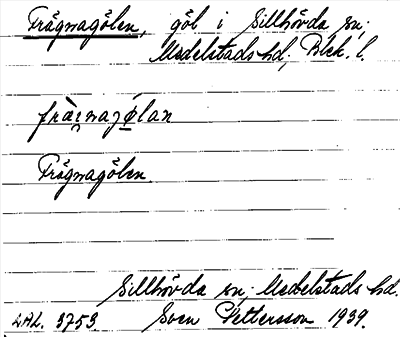 Frägnagölen, göl i Sillhövda sn;
Medelstads hd, Blek. l.
fräŋnajølan
Frägnagölen.
Sillhövda sn, Medelstads hd.
LAL. 3753 Sven Pettersson 1939.